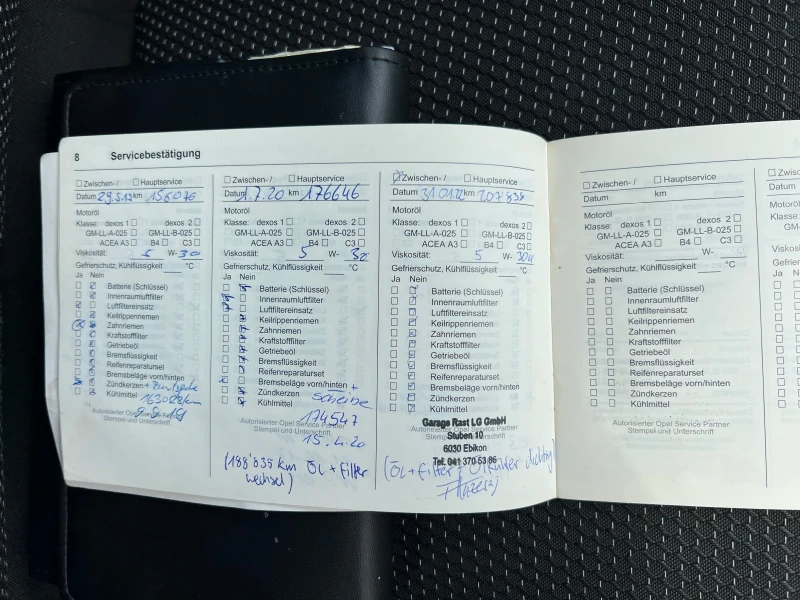 8 Servicebestätigung
Zwischen-/ Hauptservice
Datum 29.5. km 156076
Motoröl
Klasse: dexos 1 dexos 2
GM-LL-A-025 GM-LL-B-025
ACEA A3 B4 C3
Viskosität: 5 W- 30
Gefrierschutz, Kühlflüssigkeit °C
Ja Nein
Batterie (Schlüssel)
Innenraumluftfilter
Luftfiltereinsatz
Keilrippenriemen
Zahnriemen
Kraftstofffilter
Getriebeöl
Bremsflüssigkeit
Reifenreparaturset
Bremsbeläge vorn/hinten
Zündkerzen
Kühlmittel
Autorisierter Opel Service Partner
Stempel und Unterschrift
Zwischen-/ Hauptservice
Datum 1.7.20 km 176646
Motoröl
Klasse: dexos 1 dexos 2
GM-LL-A-025 GM-LL-B-025
ACEA A3 B4 C3
Viskosität: 5 W- 30
Gefrierschutz, Kühlflüssigkeit °C
Ja Nein
Batterie (Schlüssel)
Innenraumluftfilter
Luftfiltereinsatz
Keilrippenriemen
Zahnriemen
Kraftstofffilter
Getriebeöl
Bremsflüssigkeit
Reifenreparaturset
Bremsbeläge vorn/hinten +
Zündkerzen scheibe
Kühlmittel
174547
Autorisierter Opel Service Partner
Stempel und Unterschrift
15.4.20
(188'835 km Öl + Filter
wechsel)
Zwischen-/ Hauptservice
Datum 31.01.22 km 207838
Motoröl
Klasse: dexos 1 dexos 2
GM-LL-A-025 GM-LL-B-025
ACEA A3 B4 C3
Viskosität: 5 W- 30
Gefrierschutz, Kühlflüssigkeit °C
Ja Nein
Batterie (Schlüssel)
Innenraumluftfilter
Luftfiltereinsatz
Keilrippenriemen
Zahnriemen
Kraftstofffilter
Getriebeöl
Bremsflüssigkeit
Reifenreparaturset
Bremsbeläge vorn/hinten
Zündkerzen
Kühlmittel
Garage Rast LG GmbH
Autorisierter Opel Service Partner
Stuben 10
Stempel und Unterschrift
6030 Ebikon
Tel. 041 370 53 86
(Öl + Filter +
Zwischen-/ Hauptservice
Datum km
Motoröl
Klasse: dexos 1 dexos 2
GM-LL-A-025 GM-LL-B-025
ACEA A3 B4 C3
Viskosität: W-
Gefrierschutz, Kühlflüssigkeit °C
Ja Nein
Batterie (Schlüssel)
Innenraumluftfilter
Luftfiltereinsatz
Keilrippenriemen
Zahnriemen
Kraftstofffilter
Getriebeöl
Bremsflüssigkeit
Reifenreparaturset
Bremsbeläge vorn/hinten
Zündkerzen
Kühlmittel
Autorisierter Opel Service Partner
Stempel und Unterschrift